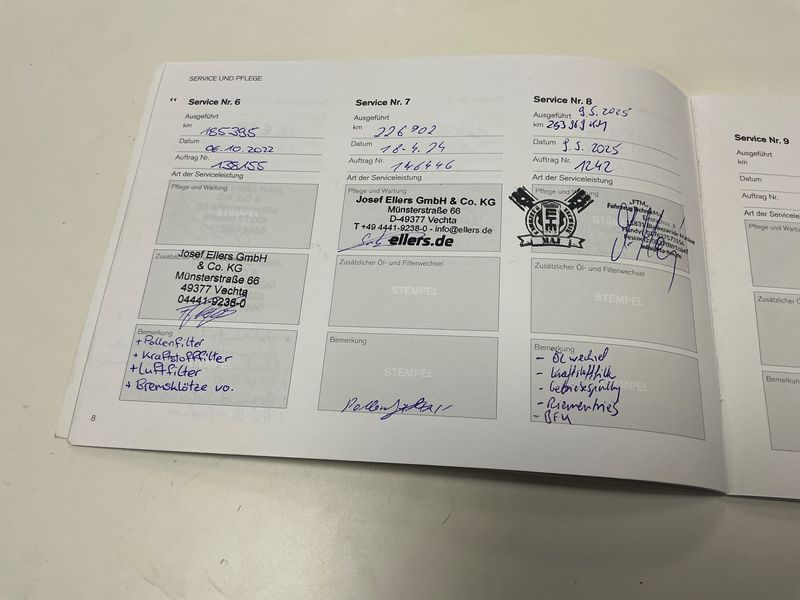 SERVICE UND PFLEGE
Service Nr. 6
Ausgeführt
km 185395
Datum 06.10.2022
Auftrag Nr. 138155
Art der Serviceleistung
Pflege und Wartung
STEMPEL
Josef Ellers GmbH
& Co. KG
Münsterstraße 66
49377 Vechta
04441-9238-0
Bemerkung
+ Pollenfilter
+ Kraftstofffilter
+ Luftfilter
+ Bremsklötze vo.
8
Service Nr. 7
Ausgeführt
km 226902
Datum 18-4.24
Auftrag Nr. 146446
Art der Serviceleistung
Pflege und Wartung
Josef Ellers GmbH & Co. KG
Münsterstraße 66
D-49377 Vechta
T +49 4441-9238-0 - info@ellers.de
ellers.de
Zusätzlicher Öl- und Filterwechsel
STEMPEL
Bemerkung
STEMPEL
Pollenfilter
Service Nr. 8
Ausgeführt 9.5.2025
km 253969 KM
Datum 9.5.2025
Auftrag Nr. 1242
Art der Serviceleistung
Pflege und Wartung
"FTM"
Zusätzlicher Öl- und Filterwechsel
STEMPEL
Bemerkung
- Öl wechsel
- Kraftstofffilter
- Getriebespülung
- Riementrieb
- BFK
Service Nr. 9
Ausgeführt
km
Datum
Auftrag Nr.
Art der Serviceleistung
Pflege und
Zusätzlicher
Bemerkung